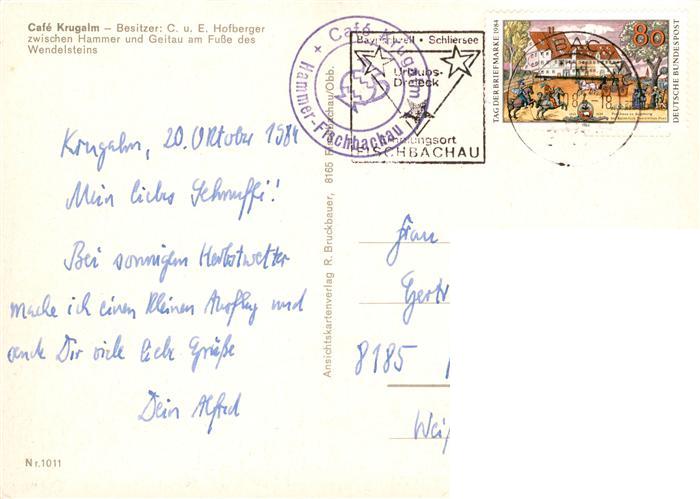 Café Krugalm – Besitzer: C. u. E. Hofberger
zwischen Hammer und Geitau am Fuße des
Wendelsteins
Krugalm, 20. Oktober 1984
Mein liebes Schnuffi!
Bei sonnigem Herbstwetter
mache ich einen kleinen Ausflug und
sende Dir viele liebe Grüße
Dein Alfred
Nr.1011
Ansichtskartenverlag R. Bruckbauer, 8165 Fischbachau/Obb.
+ Café Krugalm +
Hammer-Fischbachau
Bayrischzell · Schliersee
Urlaubs-
Dreieck
FISCHBACHAU
TAG DER BRIEFMARKE 1984
80
DEUTSCHE BUNDESPOST
Frau
Gertr
8185